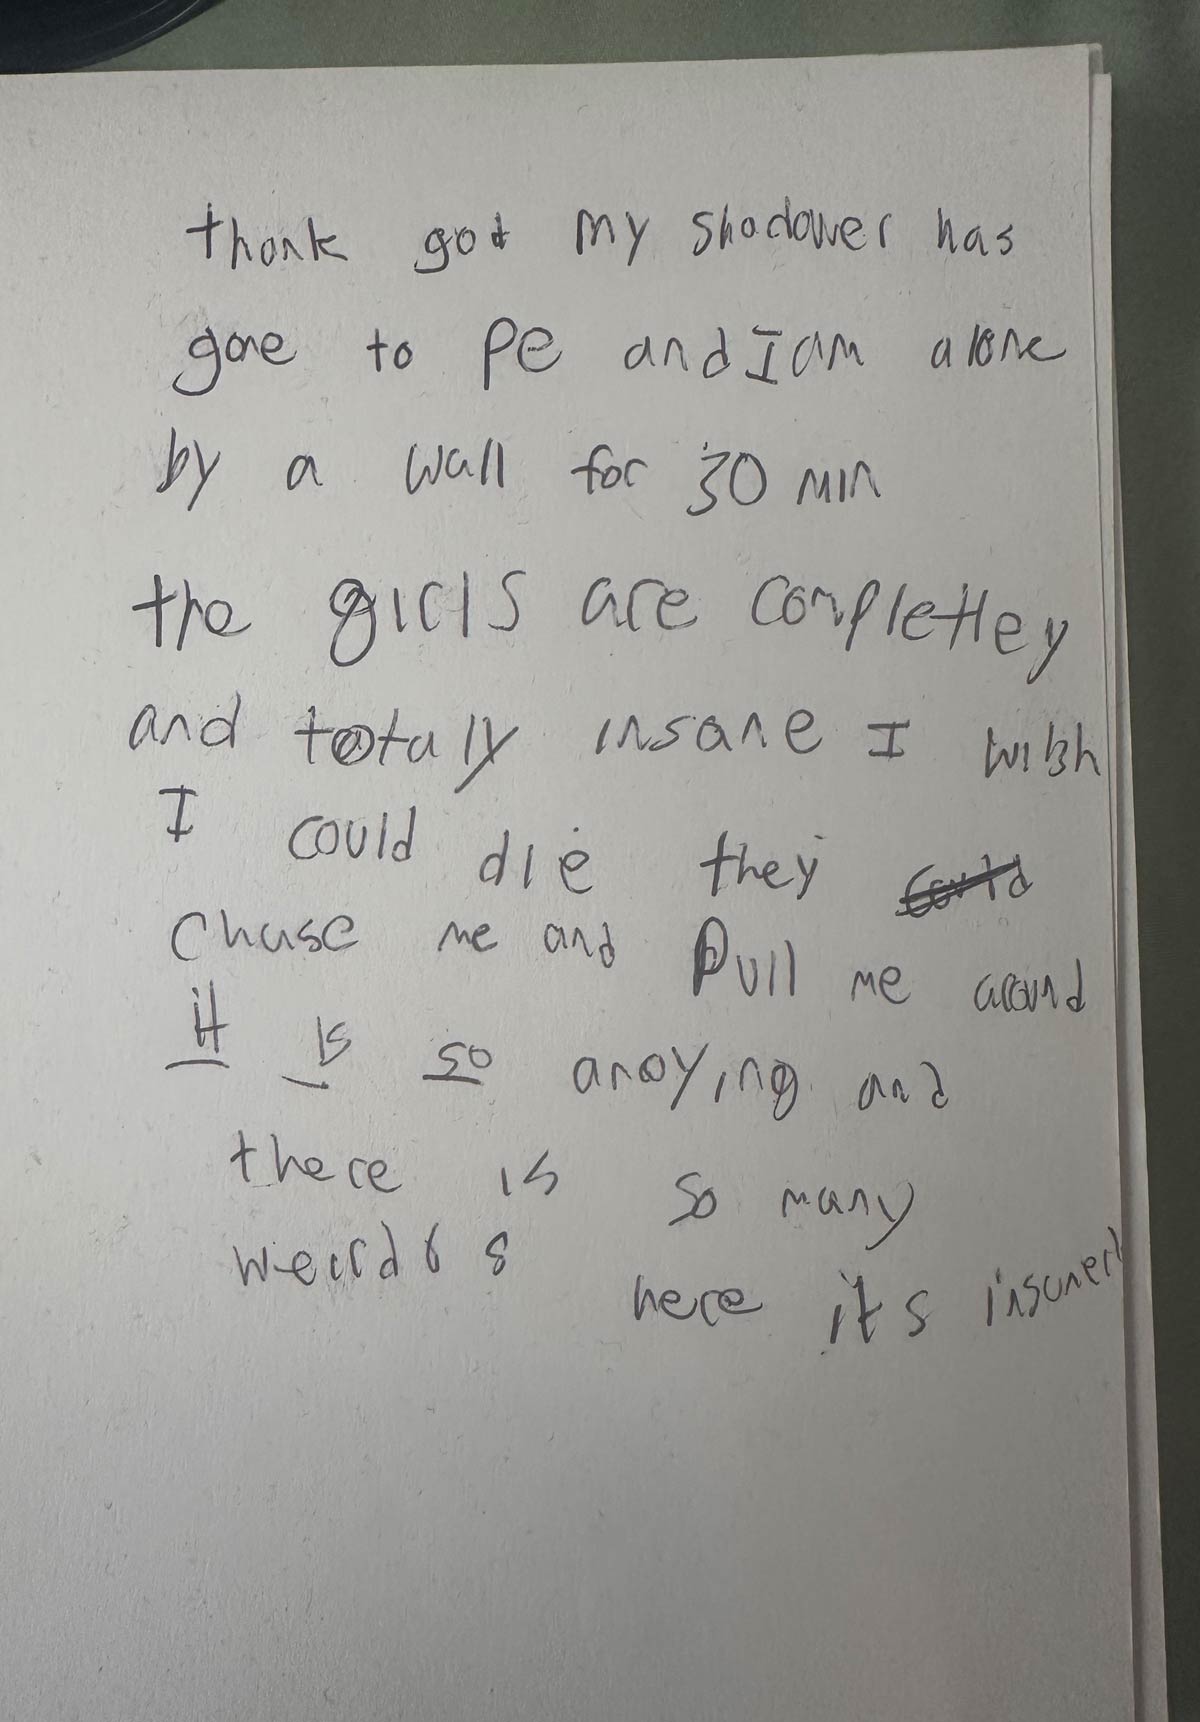 thank god my shadower has
gone to PE and I am alone
by a wall for 30 min
the girls are completley
and totaly insane I wish
I could die they could
chase me and Pull me around
it is so anoying and
there is so many
weirdos here its insane!